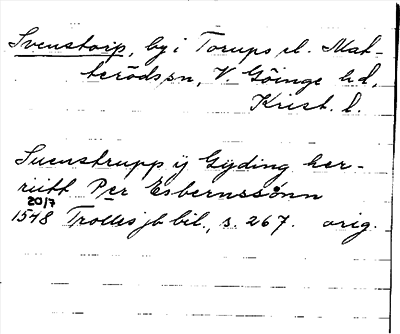 Svenstorp, by i Torups el. Mat-
teröds sn, V. Göinge hd,
Krist. l.
Suenstrupp ij Gyding her-
riutt Per Esbernssönn
20/7
1548 Trolles jb bil., s. 267. orig.